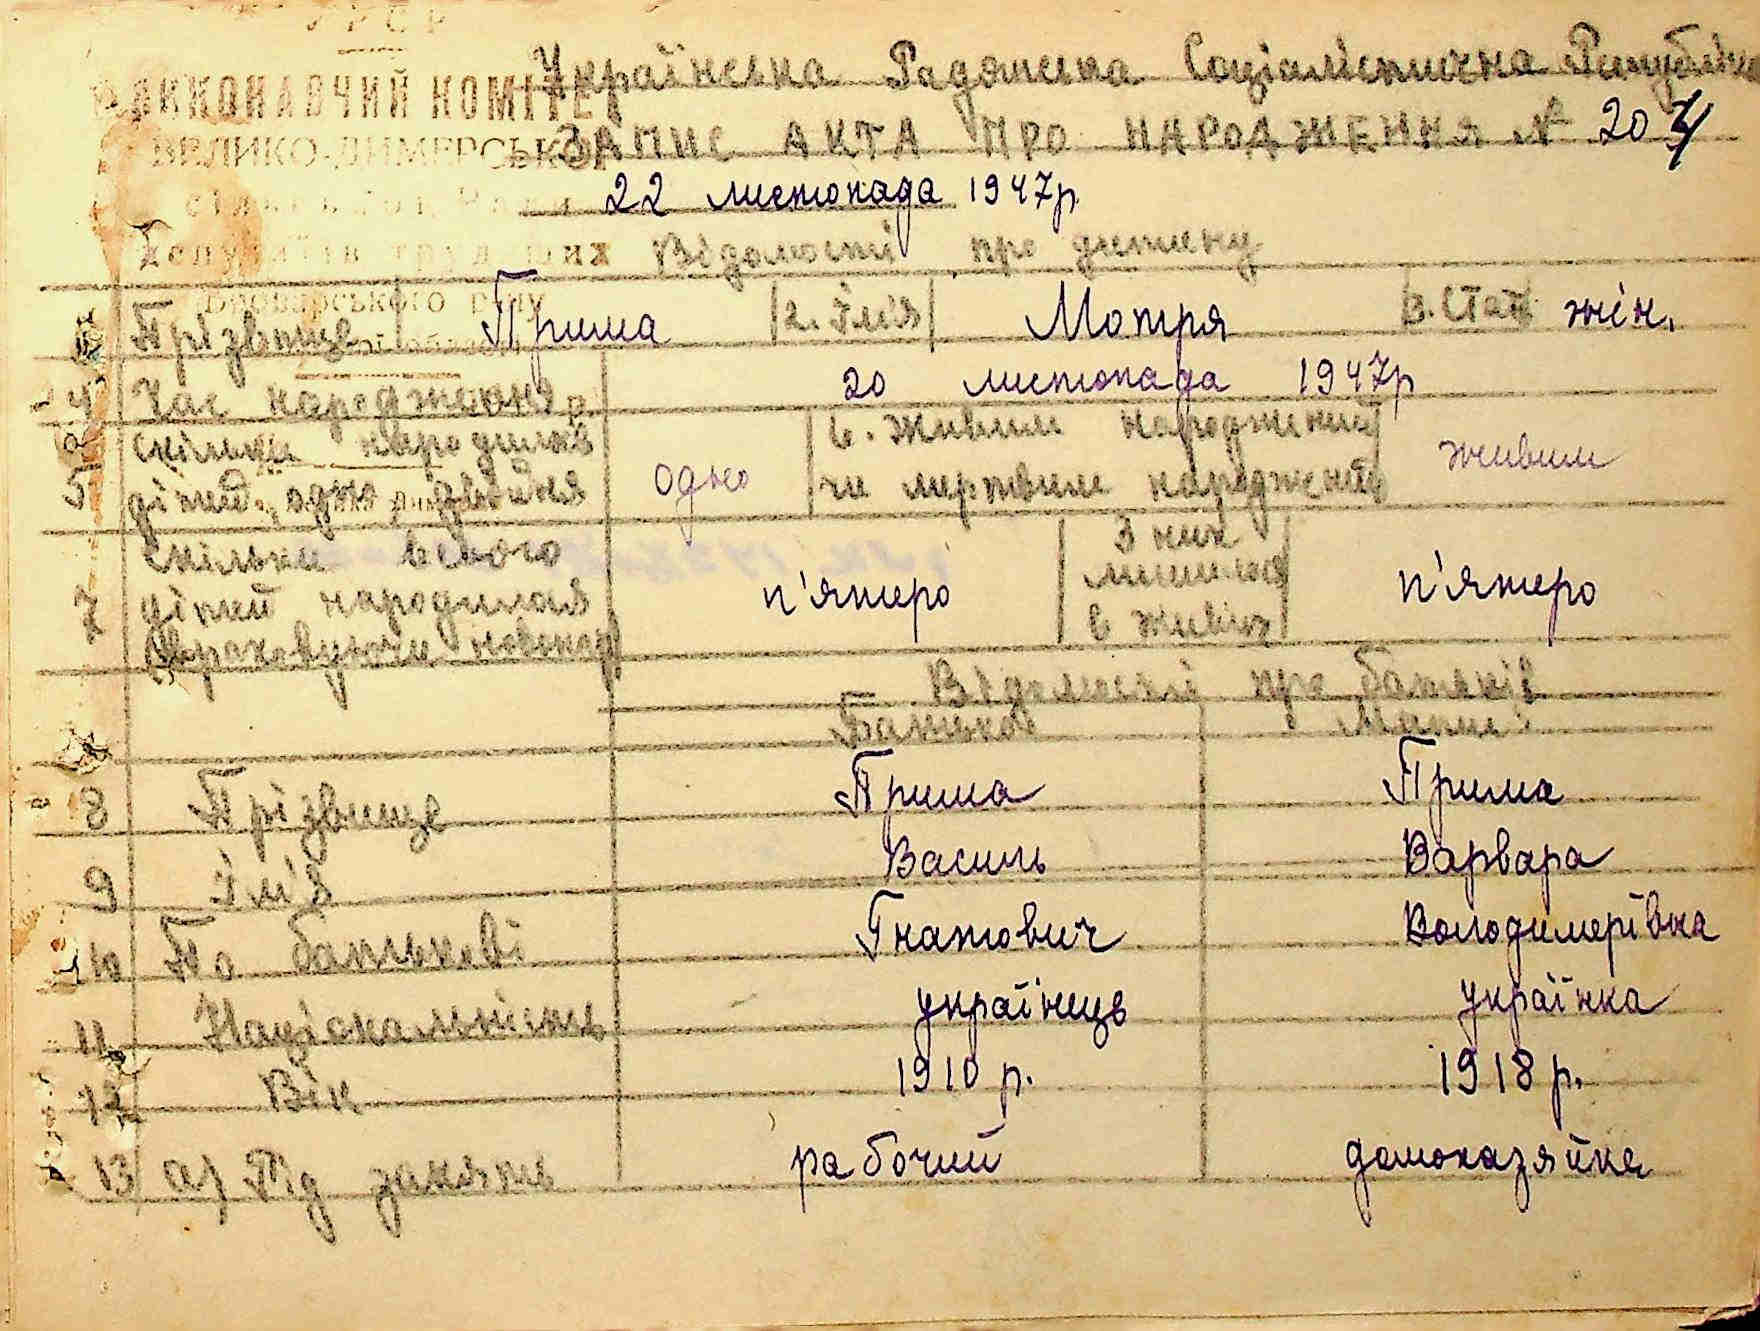 УРСР
ВИКОНАВЧИЙ КОМІТЕТ
ВЕЛИКО-ДИМЕРСЬКОЇ
сільської Ради
депутатів трудящих
Броварського р-ну
Українська Радянська Соціалістична Республіка
ЗАПИС АКТА ПРО НАРОДЖЕННЯ № 204
22 листопада 1947р.
Відомості про дитину
Прізвище Прима 2. Ім'я Мотря 3. Стать жін.
4 Час народження 20 листопада 1947р
5 Скільки народилось дітей, одно, двойня одно 6. Живим народжений чи мертвим народжений живим
7 Скільки всього дітей народилая враховуючи новонар п'ятеро З них лишилось в живих п'ятеро
Відомості про батьків
Батьков Матір
8 Прізвище Прима Прима
9 Ім'я Василь Варвара
10 По батькові Гнатович Володимерівна
11 Національність українець українка
12 Вік 1910 р. 1918 р.
13 а) Під занять рабочий домохазяйка